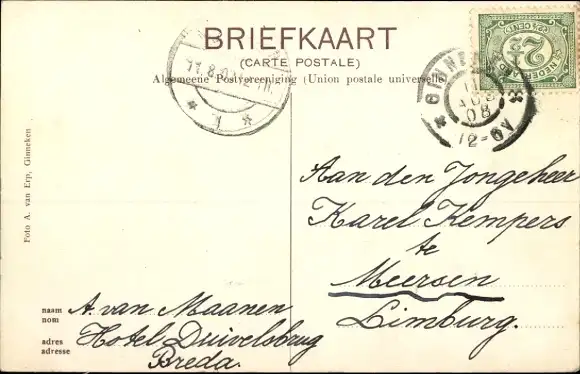 BRIEFKAART
(CARTE POSTALE)
Algemeene Postvereeniging (Union postale universelle)
11.8.
GINNE
11
AUG
08
12-6V
NEDERLAND
2½
CENT
Foto A. van Erp, Ginneken
Aan den Jongeheer
Karel Kempers
te
Meersen
Limburg.
naam
nom
A. van Maanen
adres
adresse
Hotel Duivelsbrug
Breda.